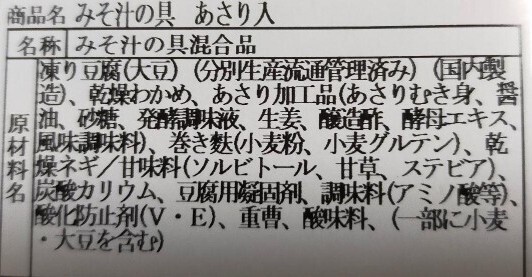 商品名 みそ汁の具 あさり入
名称 みそ汁の具混合品
原材料名
凍り豆腐(大豆)(分別生産流通管理済み)(国内製
造)、乾燥わかめ、あさり加工品(あさりむき身、醤
油、砂糖、発酵調味液、生姜、醸造酢、酵母エキス、
風味調味料)、巻き麩(小麦粉、小麦グルテン)、乾
燥ネギ/甘味料(ソルビトール、甘草、ステビア)、
炭酸カリウム、豆腐用凝固剤、調味料(アミノ酸等)、
酸化防止剤(V・E)、重曹、酸味料、(一部に小麦
・大豆を含む)